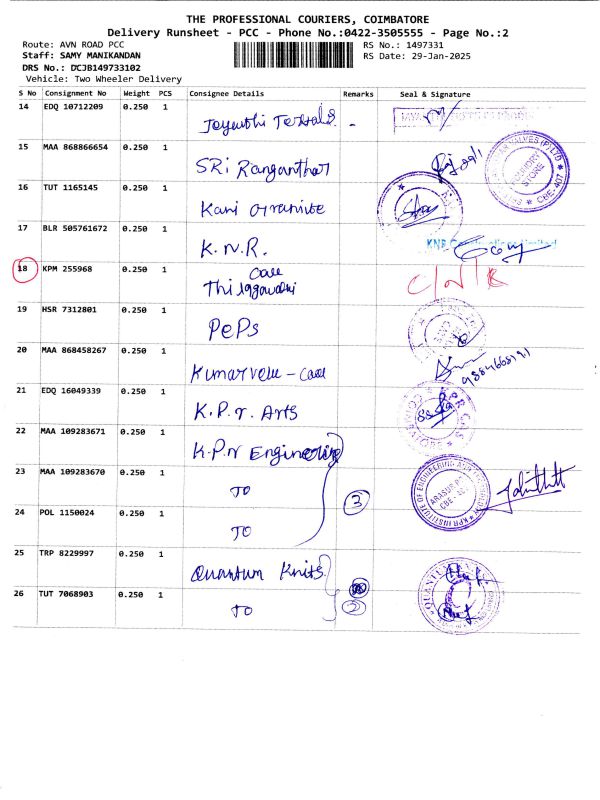 THE PROFESSIONAL COURIERS, COIMBATORE
Delivery Runsheet - PCC - Phone No.:0422-3505555 - Page No.:2
Route: AVN ROAD PCC RS No.: 1497331
Staff: SAMY MANIKANDAN RS Date: 29-Jan-2025
DRS No.: DCJB149733102
Vehicle: Two Wheeler Delivery
S No Consignment No Weight PCS Consignee Details Remarks Seal & Signature
14 EDQ 10712209 0.250 1 -
15 MAA 868866654 0.250 1 SRi Ranganthar
16 TUT 1165145 0.250 1 Kani Granite
17 BLR 505761672 0.250 1 K.N.R.
18 KPM 255968 0.250 1 C/N/R
19 HSR 7312801 0.250 1 PePs
20 MAA 868458267 0.250 1 Kumarvelu -
21 EDQ 16049339 0.250 1 K.P.r. Arts
22 MAA 109283671 0.250 1 K.P.r Engineering
23 MAA 109283670 0.250 1 TO 3
24 POL 1150024 0.250 1 TO
25 TRP 8229997 0.250 1 Quantum Knits
26 TUT 7068903 0.250 1 TO 2